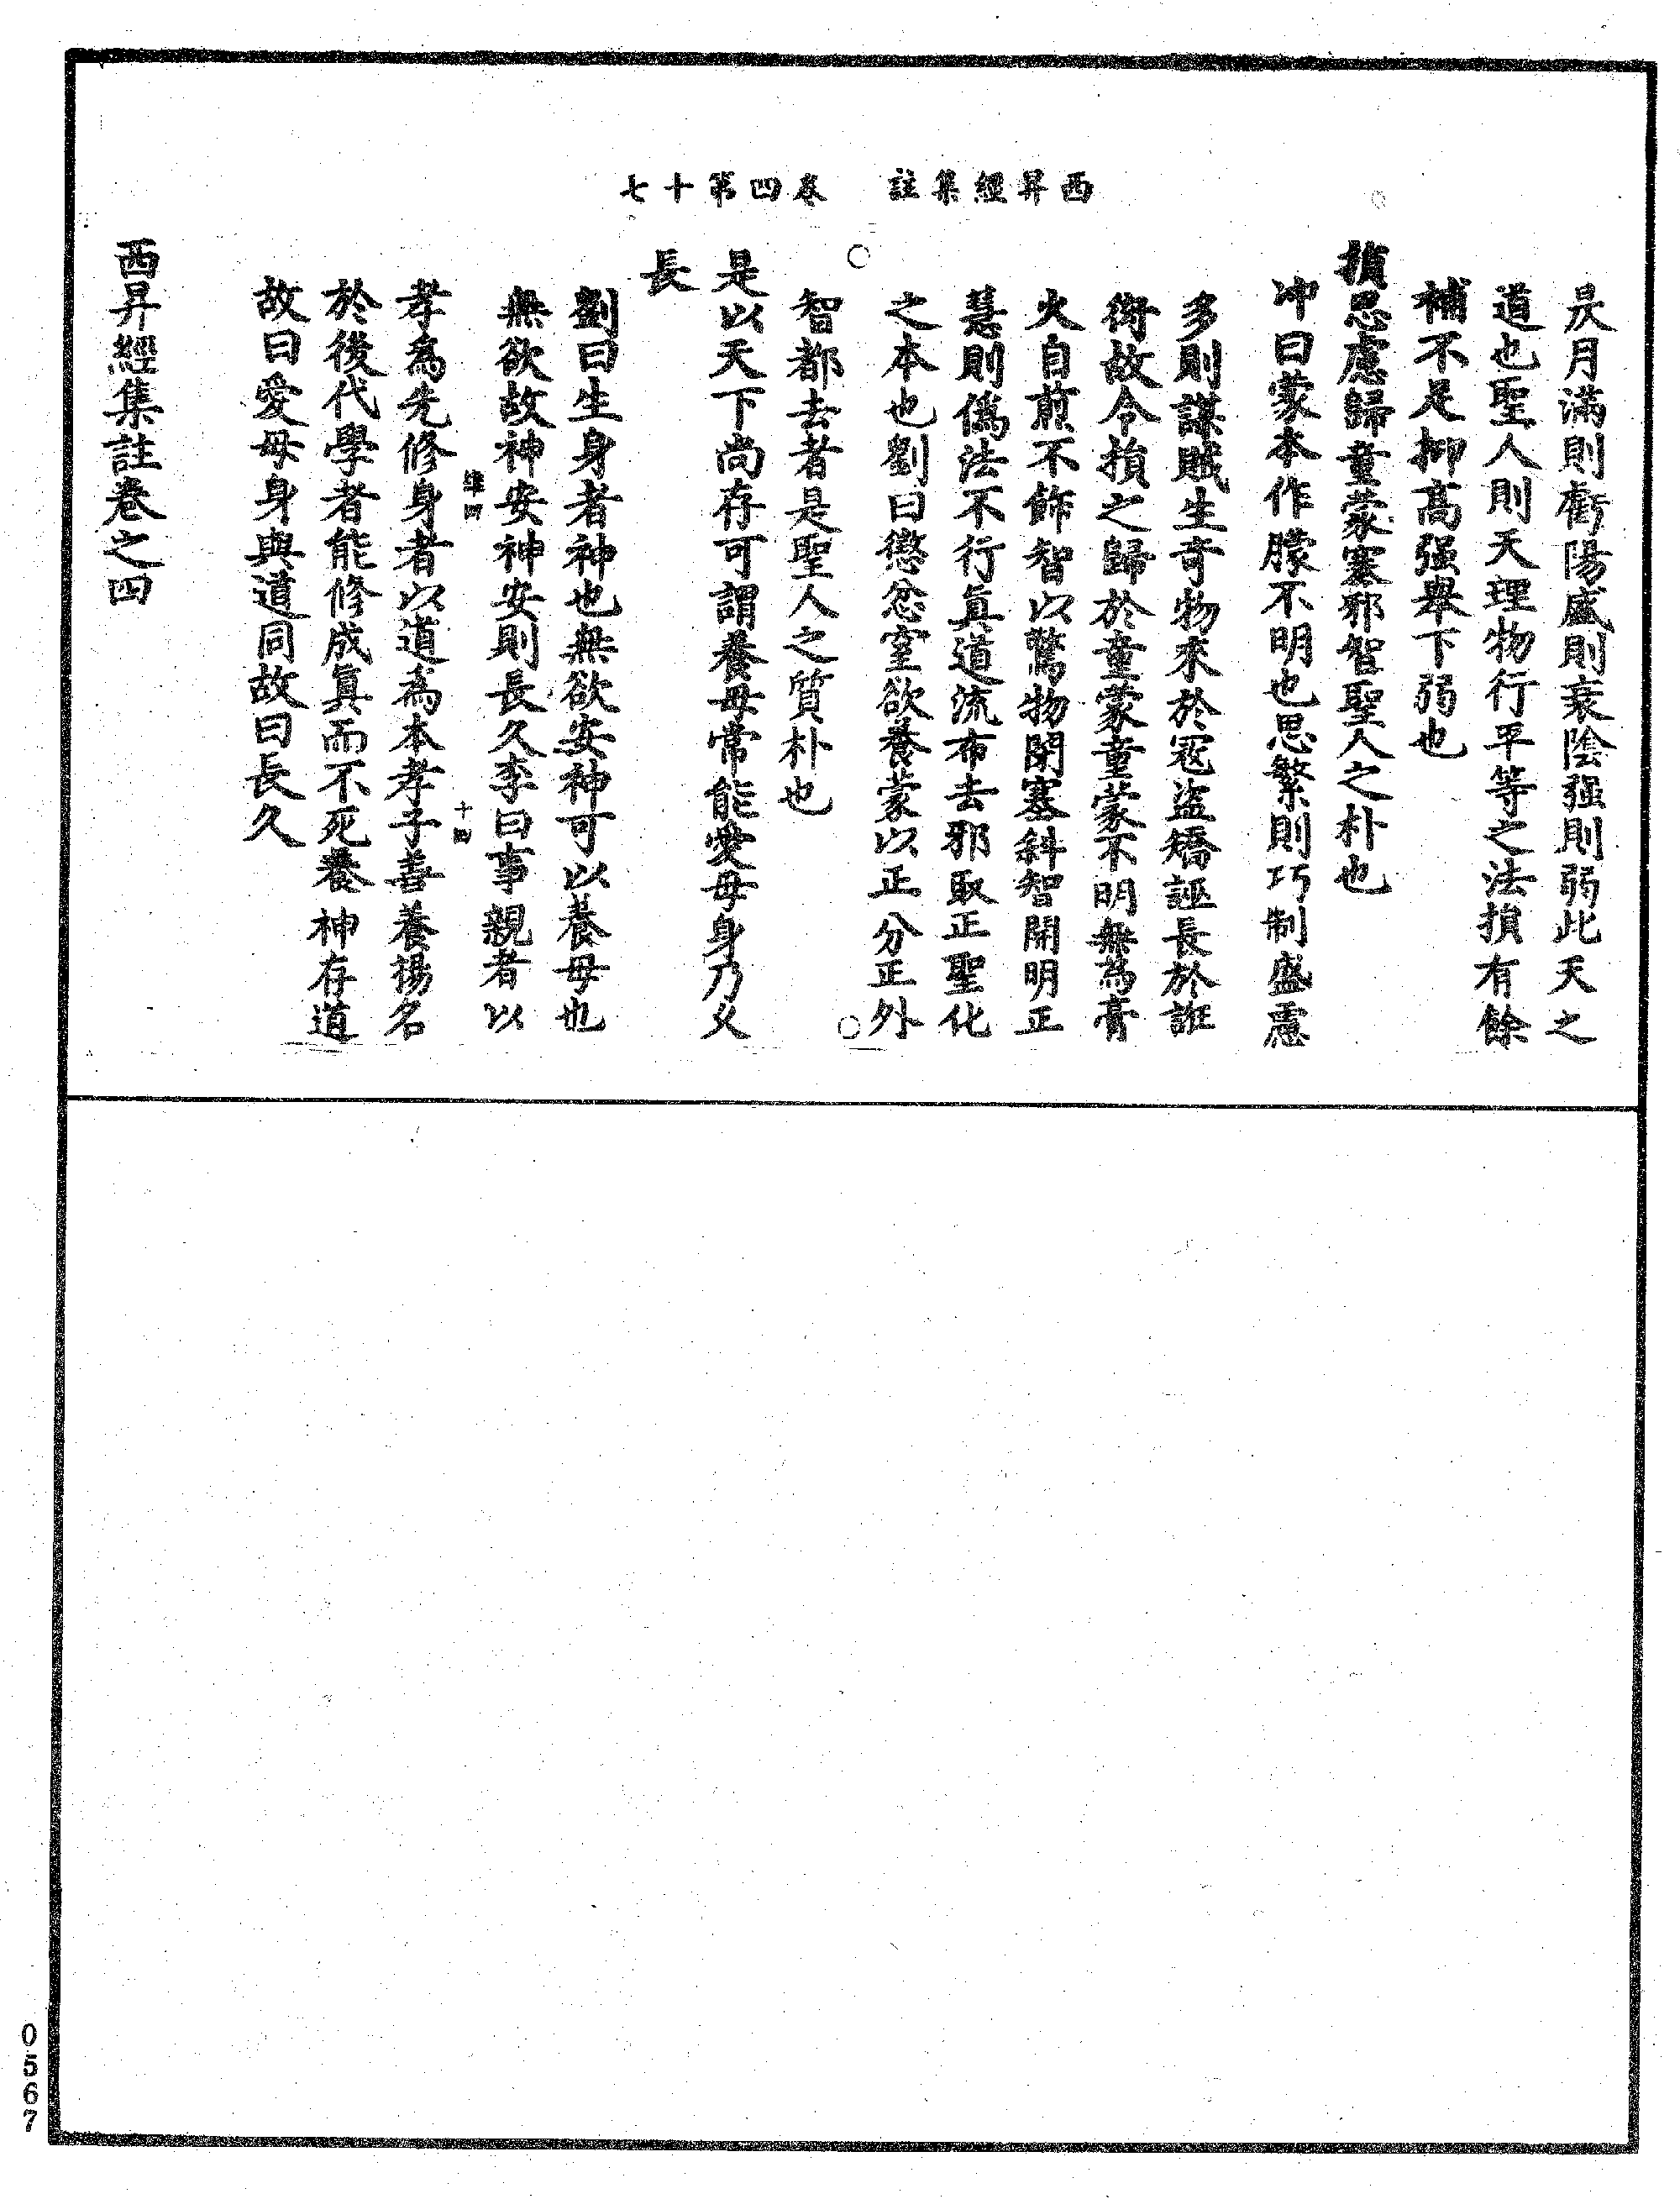 西昇經集註　卷四第十七
昃月滿則虧陽盛則衰陰強則弱此天之
道也聖人則天理物行平等之法損有餘
補不足抑高強舉下弱也
損思慮歸童蒙塞邪智聖人之朴也
冲曰蒙本作朦不明也思繁則巧制盛慮
多則謀賊生奇物來於寇盜矯誣長於誑
衒故令損之歸於童蒙童蒙不明無為膏
火自煎不飾智以驚物閉塞斜智開明正
慧則偽法不行真道流布去邪取正聖化
之本也劉曰懲忿窒欲養蒙以正分正外
智都去者是聖人之質朴也
是以天下尚存可謂養母常能愛母身乃乆
長
劉曰生身者神也無欲安神可以養母也
無欲故神安神安則長久李曰事親者以
維四　十四
孝為先修身者以道為本孝子善養揚名
於後代學者能修成真而不死養神存道
故曰愛母身與道同故曰長久
西昇經集註卷之四
0567